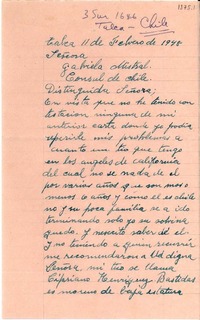 3 Sur 1686
Talca - Chile
Talca 11 de Febrero de 1948
Señora
Gabriela Mistral.
Consul de Chile
Distinguida Señora;
En vista que no he tenido con
testacion ninguna de mi
anterior carta donde ya podia
referirle mis problemas a
cuanto un tio que tengo
en los angeles de california
del cual no se nada de el
por varios años que son mas o
menos 10 años y como el es solito
no y su poca familia se a ido
terminando solo yo su sobrina
quedo. Y nesecito saber de el.
Y no teniendo a quien recurrir
me recomendaron a Ud digna
Señora, mi tio se llama
Cipriano Henriquez Bastidas
es moreno de baja estatura